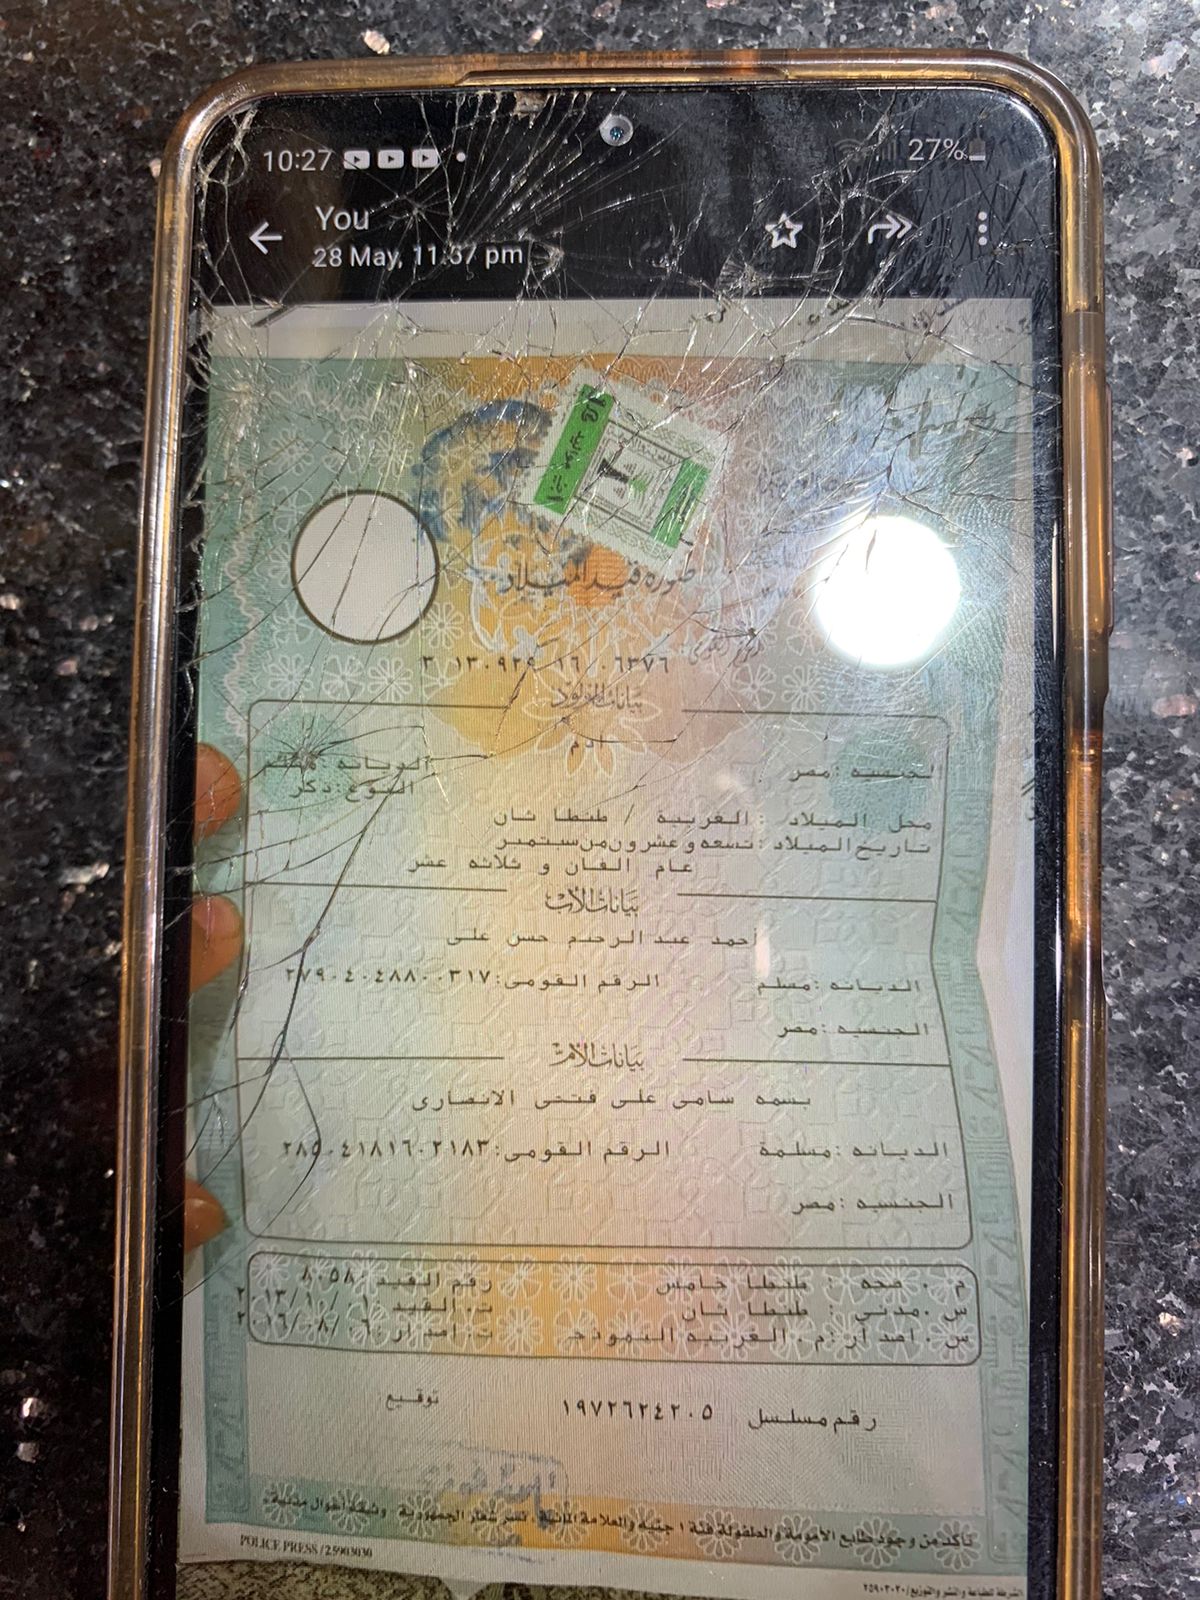 10:27
27%
You
28 May, 11:57 pm
صورة قيد الميلاد
٣ ١٣٠٩٢٩ ١٦ ٠٦٣٧٦
بيانات المولود
ادم
الجنسيه :مصر الديانه :مسلم
النوع :ذكر
محل الميلاد : الغربيه / طنطا ثان
تاريخ الميلاد : تسعه و عشرون من سبتمبر
عام الفان و ثلاثه عشر
بيانات الأب
أحمد عبد الرحيم حسن على
الديانه :مسلم الرقم القومى: ٢٧٩٠٤٠٤٨٨٠٠٣١٧
الجنسيه :مصر
بيانات الأم
بسمه سامى على فتحى الانصارى
الديانه :مسلمة الرقم القومى: ٢٨٥٠٤١٨١٦٠٢١٨٣
الجنسيه :مصر
م . صحه : طنطا خامس رقم القيد :٨٠٥٨
س .مدني : طنطا ثان ت. القيد
س . اصدار :م. الغربيه النموذجى ت: اصدار
رقم مسلسل ١٩٧٢٦٢٤٢٠٥ توقيع
تأكد من وجود طابع الأمومة والطفولة فئة ١ جنيه والعلامة المائية نسر شعار الجمهورية وثيقة أحوال مدنية
POLICE PRESS / 25903030
الشرطة للطباعة والنشر والتوزيع / ٢٥٩٠٣٠٣٠